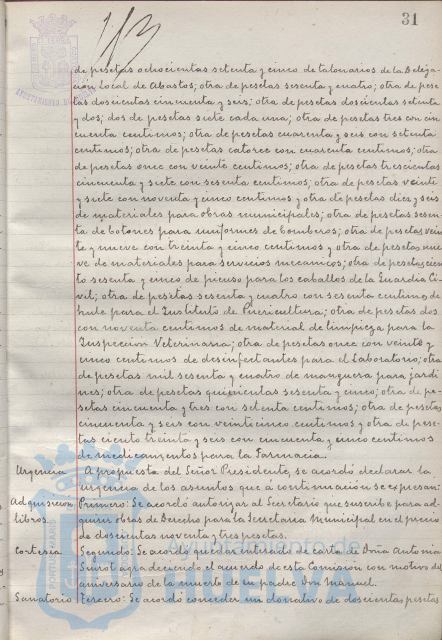 31
de pesetas ochocientas setenta y cinco de talonarios de la Delega-
ción Local de Abastos; otra de pesetas sesenta y cuatro; otra de pese-
tas doscientas cincuenta y seis; otra de pesetas doscientas setenta
y dos; dos de pesetas siete cada una; otra de pesetas tres con cin-
cuenta centimos; otra de pesetas cuarenta y seis con setenta
centimos; otra de pesetas catorce con cuarenta centimos; otra
de pesetas once con veinte centimos; otra de pesetas trescientas
cincuenta y siete con sesenta centimos; otra de pesetas veinte
y siete con noventa y cinco centimos y otra de pesetas diez y seis
de materiales para obras municipales; otra de pesetas sesen-
ta de botones para uniformes de bomberos; otra de pesetas vein-
te y nueve con treinta y cinco centimos y otra de pesetas nue-
ve de materiales para servicios mecanicos; otra de pesetas cien-
to sesenta y cinco de picuso para los caballos de la Guardia Ci-
vil; otra de pesetas sesenta y cuatro con sesenta centimos de
hule para el Instituto de Puericultura; otra de pesetas dos
con noventa centimos de material de limpieza para la
Inspeccion Veterinaria; otra de pesetas once con veinte y
cinco centimos de desinfectantes para el Laboratorio; otra
de pesetas mil sesenta y cuatro de manguera para jardi-
nes; otra de pesetas quinientas sesenta y cinco; otra de pe-
setas cincuenta y tres con setenta centimos; otra de pesetas
cincuenta y seis con veinticinco centimos y otra de pese-
tas ciento treinta y seis con cincuenta y cinco centimos
de medicamentos para la Farmacia.
Urgencia A propuesta del Señor Presidente, se acordó declarar la
urgencia de los asuntos que á continuación se expresan:
Adquisicion Primero: Se acordó autorizar al Secretario que suscribe para ad-
libros. quirir obras de Derecho para la Secretaria Municipal en el precio
de doscientas noventa y tres pesetas.
Cortesia Segundo: Se acordó quedar enterado de carta de Doña Antonia
Siurot agradeciendo el acuerdo de esta Comisión con motivo del
aniversario de la muerte de su padre Don Manuel.
Sanatorio Tercero: Se acordó conceder un donativo de doscientas pesetas
Ayuntamiento de
HUELVA